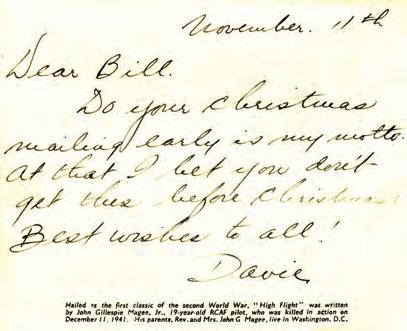 November. 11th
Dear Bill.
Do your Christmas
mailing early is my motto.
At that I bet you don't
get this before Christmas
Best wishes to all!
Davie
Hailed as the first classic of the second World War, "High Flight" was written
by John Gillespie Magee, Jr., 19-year-old RCAF pilot, who was killed in action on
December 11, 1941. His parents, Rev. and Mrs. John G Magee, live in Washington, D.C.